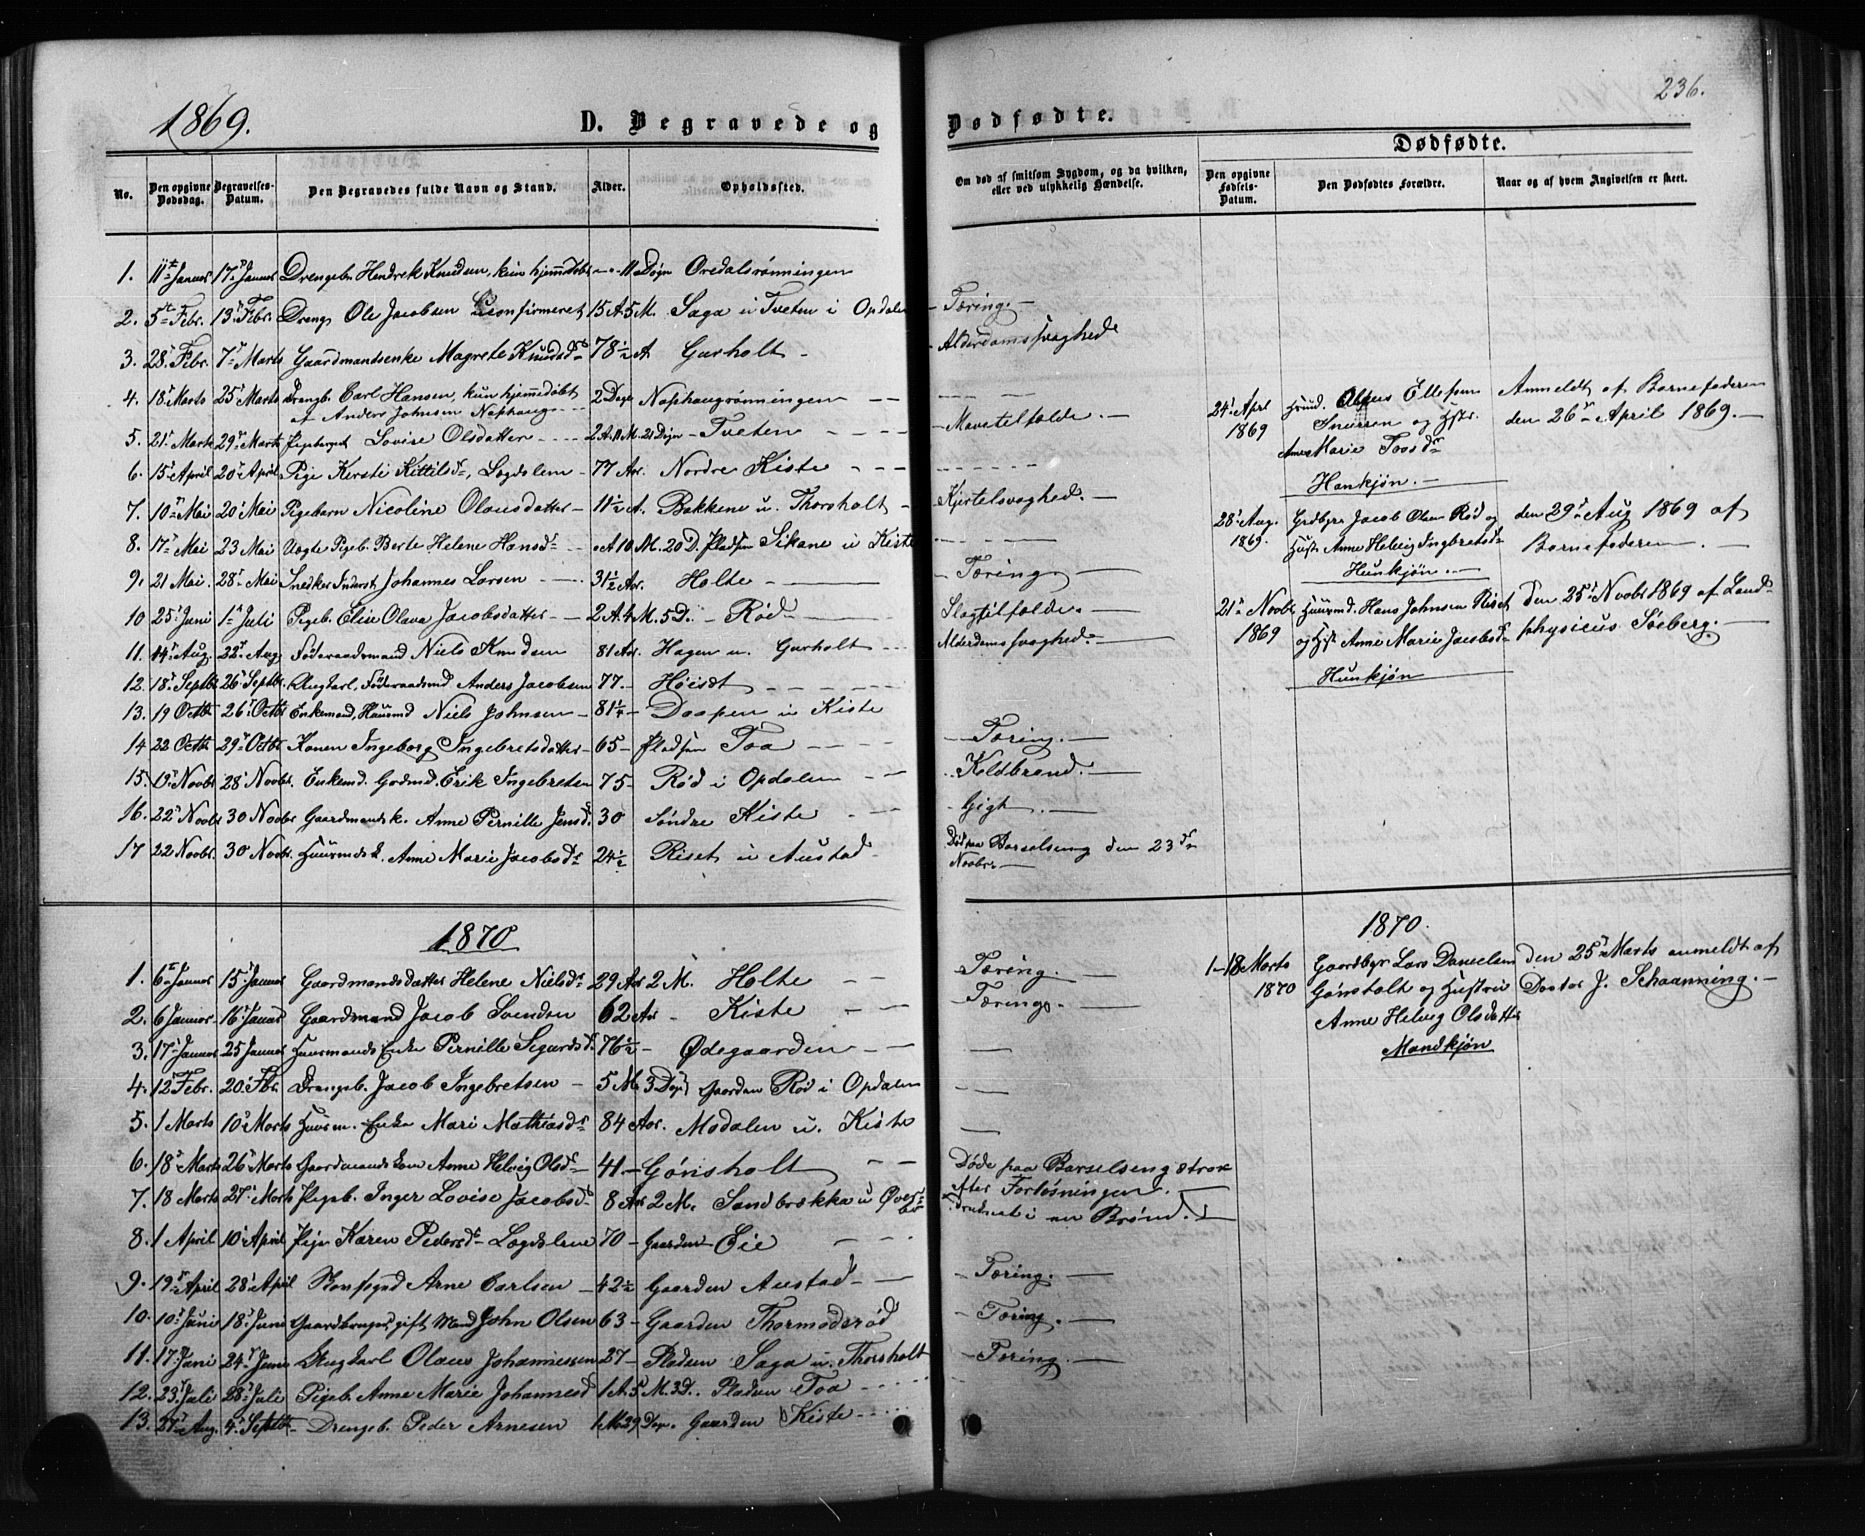 1869.
D. Begravede og
No. Den opgivne Dødsdag. Begravelses-Datum. Den Begravedes fulde Navn og Stand. Alder. Opholdssted.
1. 11te Januar 17de Januar Drengebn Hendrek Knudsen, kun hjemmedøbt 11 Døgn Oredalsrønningen
2. 5te Febr. 13de Febr. Dreng Ole Jacobsen Confirmeret 15 A. 5 M. Saga u Tveten i Opdalen
3. 28 Febr. 7de Marts Gaardmandsenke Magrete Knudsdr 78½ A Gurholt
4. 18 Marts 25 Marts Drengb. Carl Hansen, kun hjemmedøbt 2 Døgn Naphaugrønningen
af Anders Johnsen Naphaug
5. 21 Marts 29 Marts Pigebarnet Lovise Olsdatter 2 A. 11 M. 21 Døgn Tveten
6. 15 April 20 April Pige Kirsti Kittilsdr, Lægdslem 77 Aar. Nordre Kiste
7. 10 Mai 20 Mai Pigebarn Nicoline Olausdatter 11½ A. Bakkene u. Thorsholt
8. 17 Mai 23 Mai Uægte Pigeb. Berte Helene Hansdr A 10 M. 20 D. Pladsen Sikane u Kiste
9. 21 Mai. 28 Mai Snedker Inderst Johannes Larsen 31½ Aar. Holte
10 25 Juni 1 Juli Pigeb. Elise Olava Jacobsdatter 2 A. 4 M. 5 D. Rød
11. 14 Aug. 22 Aug Føderaadsmand Niels Knudsen 81 Aar. Hagen u. Gurholt
12. 18 Septbr 26 Septbr. Ungkarl, Føderaadsmd Anders Jacobsen 77. Høisæt
13. 19 Octbr 26 Octbr Enkemand, Huusmd Niels Johnsen 81½ Daapen u Kiste
14 22 Octbr 29 Octbr Konen Ingeborg Ingebretsdatter 65 Pladsen Toa
15. 19 Novbr 28 Novbr. Enkemd. Gaardmd. Erik Ingebretsen 75 Rød i Opdalen
16. 22 Novbr 30 Novbr Gaardmandsk. Anne Pernille Jensd. 30 Søndre Kiste
17 22 Novbr. 30 Novbr. Huusmdsk. Anne Marie Jacobsdr 24½ Riset u Austad
1870
1. 6 Januar 15 Januar Gaardmandsdatter Helene Nielsdr 29 Aar 2 M. Holte
2. 6 Januar. 16 Januar Gaardmand Jacob Svendsen 62 Aar Kiste
3. 17 Januar 25 Januar Huusmands Enke Pernille Sigurdsdr 76½ Ødegaarden
4. 12 Febr. 20 Fbr. Drengeb. Jacob Ingebretsen 5 M. 3 Døgn Gaarden Rød i Opdalen
5. 1 Marts 10 Marts Huusm. Enke Mari Mathiasdr 84 Aar. Modalen u. Kiste
6. 18 Marts 26 Marts Gaardmands Kone Anne Helvig Olsdr 41 Gønsholt
7. 18 Marts 27 Marts Pigeb. Inger Lovise Jacobsd. 8 Aar 2 M. Sandbrækka u
8. 1 April 10 April Pige Karen Pedersdr Lægdslem 70 Gaarden Eie
9. 19 April 28 April Arne Carlsen 42½ Gaarden Austad
10. 10 Juni 18 Juni Gaardbruger gift Mand John Olsen 63 Gaarden Thormodsrød
11. 17 Juni 24 Juni Ungkarl Olaus Johannessen 27 Pladsen Saga u. Thorsholt
12. 23 Juli 28 Juli Pigeb. Anne Marie Johannesd 1 A. 5 M. 3 D. Pladsen Toa
13. 27 Aug. 4 Septbr Drengeb. Peder Arnesen 1 M. 29 Døgn. Gaarden Kiste
236.
Dødfødte.
Om død af smitsom Sygdom, og da hvilken, eller ved ulykkelig Hændelse.
Dødfødte.
Den opgivne Fødsels-Datum. Den Dødfødtes Forældre. Naar og af hvem Angivelsen er skeet.
Tæring.
Alderdomssvaghed
Mavetilfælde.
Kjertelsvaghed.
Tæring
Slagtilfælde.
Alderdomssvaghed.
Tæring.
Koldbrand.
Gigt.
Død paa Barselseng den 23de
Novbr
24 April 1869 Huusmd. Ellefsen
og Hstr.
Anne Marie
Hankjøn.
Anmeldt af Barnefaderen
den 26 April 1869.
28 Aug. 1869. Grdbgr Jacob Olsen Rød og
Hustr Anne Helvig Ingbretsdr
Hunkjøn.
den 29 Aug 1869 af
Barnefaderen.
21 Novbr 1869 Huusmd. Hans Johnsen Riset
og Hst. Anne Marie Jacobsdr
Hunkjøn
den 25 Novbr 1869 af Land-
physicus Søeberg.
1870.
Tæring.
Tæring.
Døde paa Barselseng strax
efter Forløsningen.
Druknet i en Brønd.
Tæring.
Tæring.
Tæring.
1 18 Marts 1870 Gaardbgr Lars Danielsen
Gønsholt og Hustru
Anne Helvig Olsdatter
Mandkjøn
den 25 Marts anmeldt af
Doctor J. Schaanning.